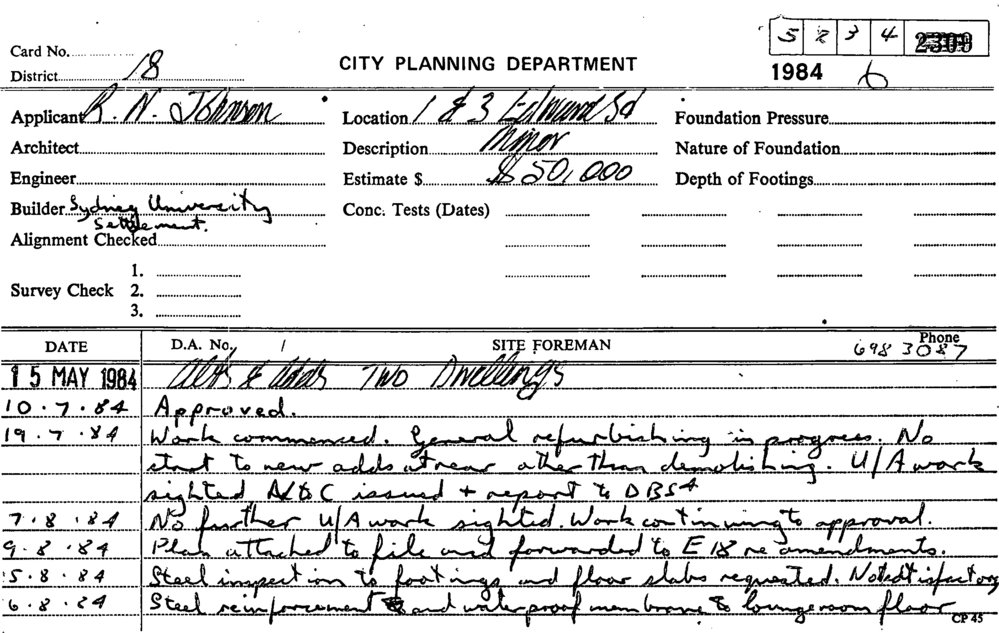 5 2 3 4 2309
Card No.
District 18
CITY PLANNING DEPARTMENT
1984 6
Applicant R. N. Johnson
Location 1 & 3 Edmund Sd
Foundation Pressure
Architect
Description Minor
Nature of Foundation
Engineer
Estimate $ $ 50,000
Depth of Footings
Builder Sydney University
Settlement.
Conc. Tests (Dates)
Alignment Checked
1.
Survey Check 2.
3.
DATE D.A. No. / SITE FOREMAN Phone
698 3087
15 MAY 1984 Alts & Adds Two Dwellings
10.7.84 Approved.
19.7.84 Work commenced. General refurbishing in progress. No
start to new adds at rear other than demolishing. U/A work
sighted issued + report to DBS
7.8.84 No further U/A work sighted. Work continuing to approval.
9.8.84 Plan attached to file and forwarded to E18 re amendments.
5.8.84 Steel inspection to footings and floor slabs requested.
6.8.84 Steel reinforcement and waterproof membrane to loungeroom floor
CP 45